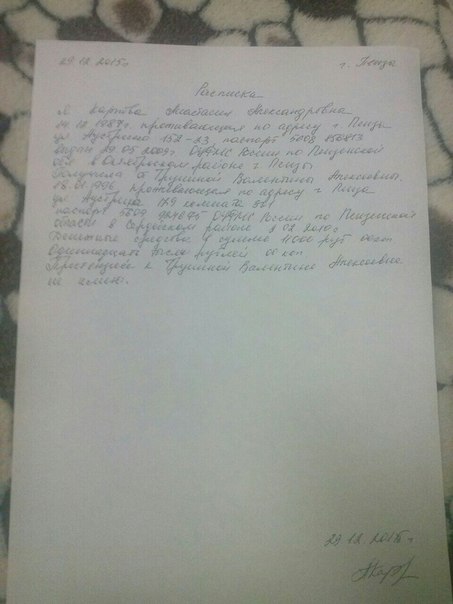 29.12.2015г. г. Пенза
Расписка
Я Анастасия Александровна
1987г. проживающая по адресу г. Пенза
ул Аустрина паспорт
выдан 29.05.2009г. ОУФМС России по Пензенской
обл в Октябрьском районе г Пензы.
Получила от Трушиной Валентины Алексеевны,
1996, проживающая по адресу г Пенза
ул Аустрина 179 комната
паспорт 5609 ОУФМС России по Пензенской
области в Сердобском районе 02 2010г
Денежные средства в сумме 11000 руб 00коп
Одиннадцать тысяч рублей 00 коп
Претензий к Трушиной Валентине Алексеевне
не имею.
29 12 2015г